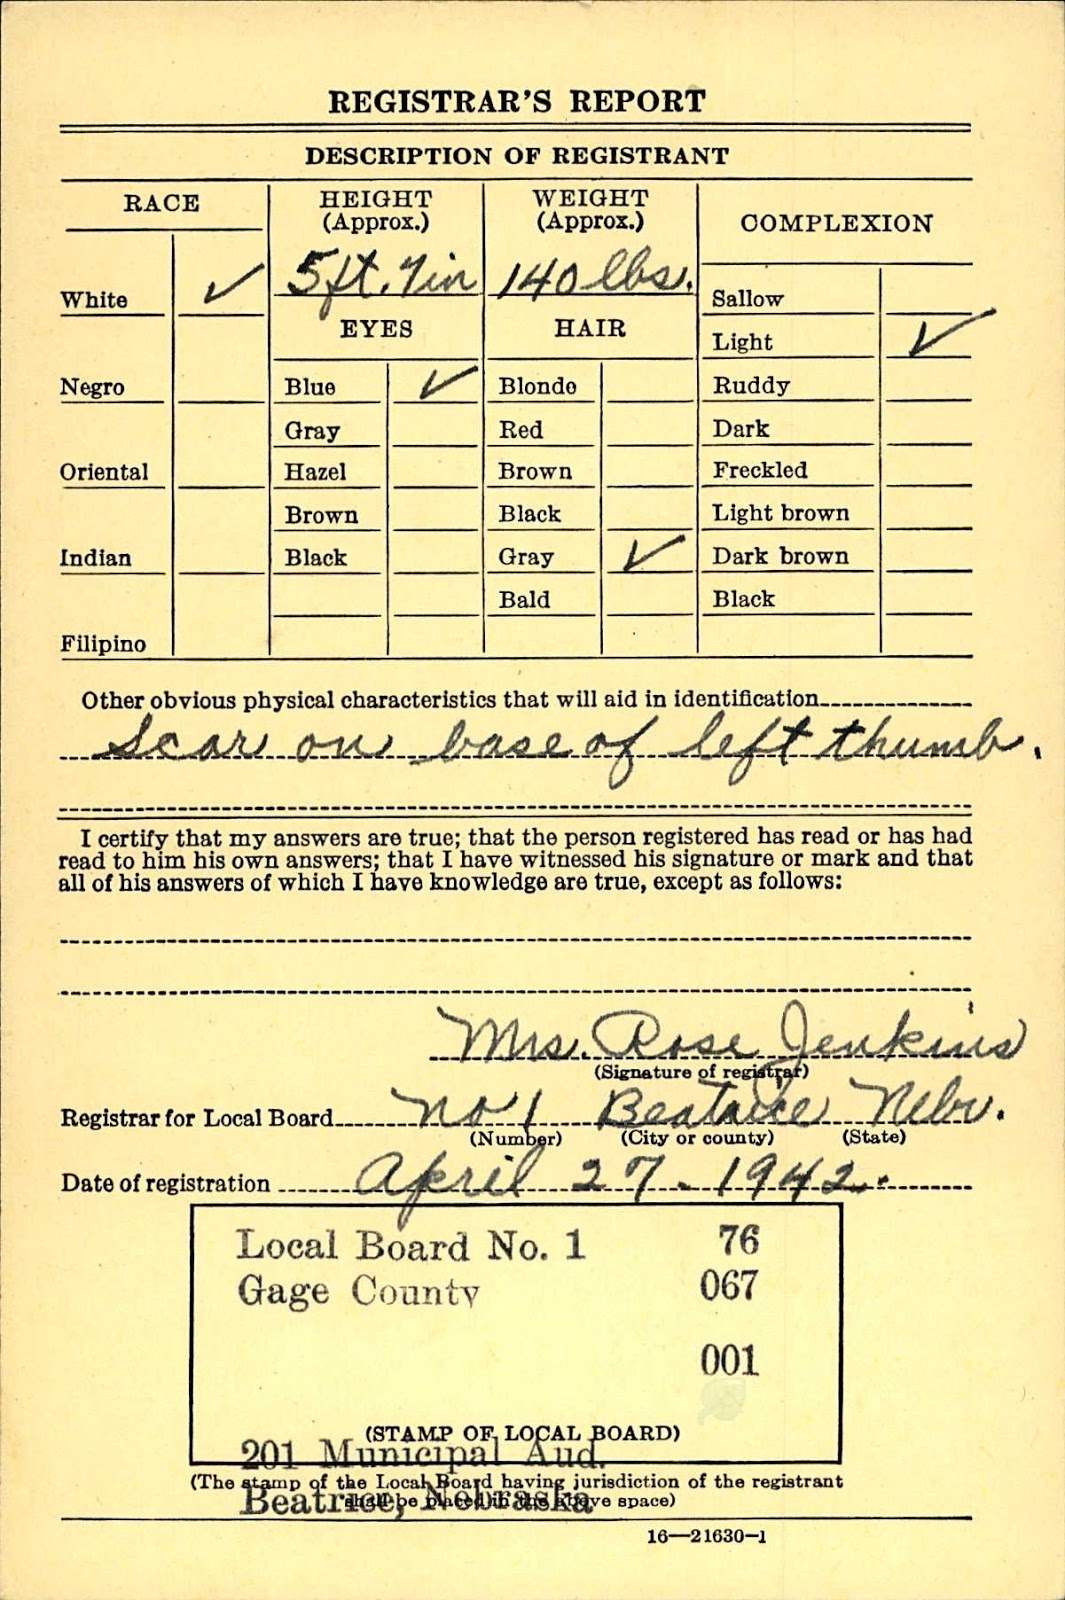 REGISTRAR'S REPORT
DESCRIPTION OF REGISTRANT
RACE
HEIGHT (Approx.)
WEIGHT (Approx.)
COMPLEXION
White ✓
5 ft. 7 in
140 lbs.
Sallow
EYES
HAIR
Light ✓
Negro
Blue ✓
Blonde
Ruddy
Gray
Red
Dark
Oriental
Hazel
Brown
Freckled
Brown
Black
Light brown
Indian
Black
Gray ✓
Dark brown
Bald
Black
Filipino
Other obvious physical characteristics that will aid in identification
Scar on base of left thumb.
I certify that my answers are true; that the person registered has read or has had
read to him his own answers; that I have witnessed his signature or mark and that
all of his answers of which I have knowledge are true, except as follows:
Mrs. Rose Jenkins
(Signature of registrar)
Registrar for Local Board No 1 Beatrice Nebr.
(Number) (City or county) (State)
Date of registration April 27. 1942.
Local Board No. 1 76
Gage County 067
001
(STAMP OF LOCAL BOARD)
201 Municipal Aud.
(The stamp of the Local Board having jurisdiction of the registrant
Beatrice, Nebraska
shall be placed in the above space)
16—21630-1